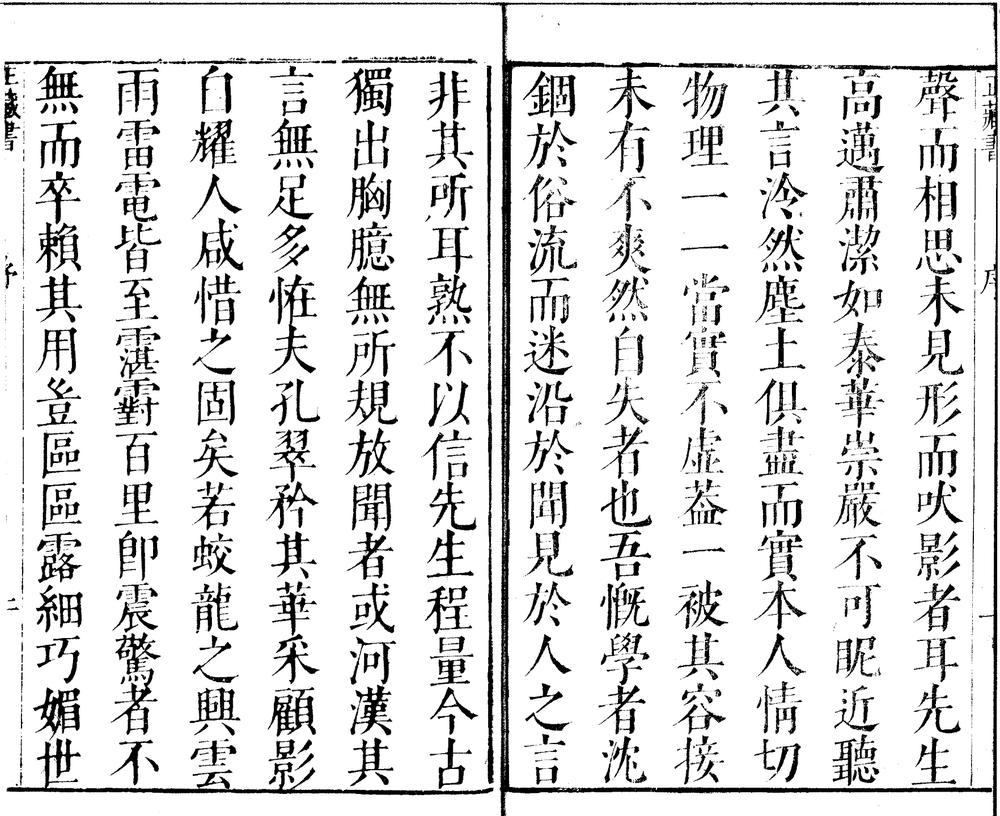 聲而相思未見形而吠影者耳先生
高邁肅潔如泰華崇嚴不可眤近聽
其言泠然塵土俱盡而實本人情切
物理一一當實不虛葢一被其容接
未有不爽然自失者也吾慨學者沈
錮於俗流而迷沿於聞見於人之言
非其所耳熟不以信先生程量今古
獨出胸臆無所規放聞者或河漢其
言無足多恠夫孔翠矜其華采顧影
自耀人咸惜之固矣若蛟龍之興雲
雨雷電皆至霮䨴百里卽震驚者不
無而卒賴其用豈區區露細巧媚世